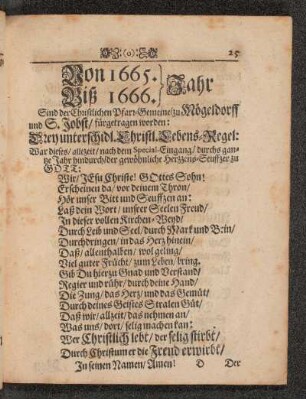 :(o): 25
Von 1665.
Biß 1666. } Jahr
Sind der Christlichen Pfarr-Gemeine/ zu Mögeldorff
und S. Jobst/ fürgetragen worden:
Drey unterschidl. Christl. Lebens-Regel:
War dieses/ allzeit/ nach dem Special-Eingang/ durchs gan-
tze Jahr hindurch/ der gewöhnliche Hertzens-Seuffzer zu
GOTT:
Wir/ JEsu Christe! GOttes Sohn!
Erscheinen da/ vor deinem Thron/
Hör unser Bitt und Seuffzen an:
Laß dein Wort/ unsrer Seelen Freud/
In dieser vollen Kirchen-Weyd/
Durch Leib und Seel/ durch Marck und Bein/
Durchdringen/ in das Hertz hinein/
Daß/ allenthalben/ wol geling/
Viel guter Frücht/ zum Leben/ bring.
Gib Du hierzu Gnad und Verstand/
Regier und rühr/ durch deine Hand/
Die Zung/ das Hertz/ und das Gemüt/
Durch deines Geistes Stralen Güt/
Daß wir/ allzeit/ das nehmen an/
Was uns/ dort/ selig machen kan:
Wer Christlich lebt/ der selig stirbt/
Durch Christum er die Freud erwirbt/
In seinen Namen/ Amen! D Der